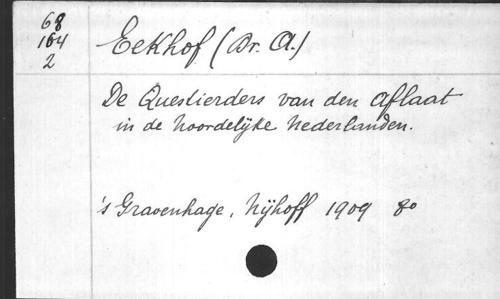 68
164
2
Eekhof (Dr. A.)
De Questierders van den aflaat
in de Noordelijke Nederlanden.
's Gravenhage, Nijhoff 1909 80